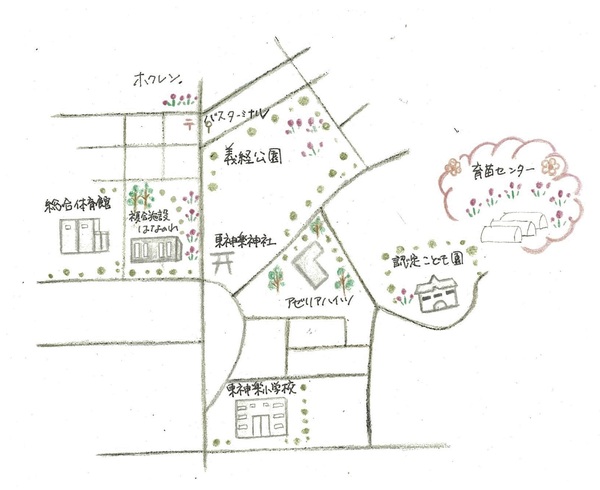 ホクレン
〒
バスターミナル
義経公園
育苗センター
総合体育館
複合施設
はなのわ
東神楽神社
認定こども園
アゼリアハイツ
東神楽小学校